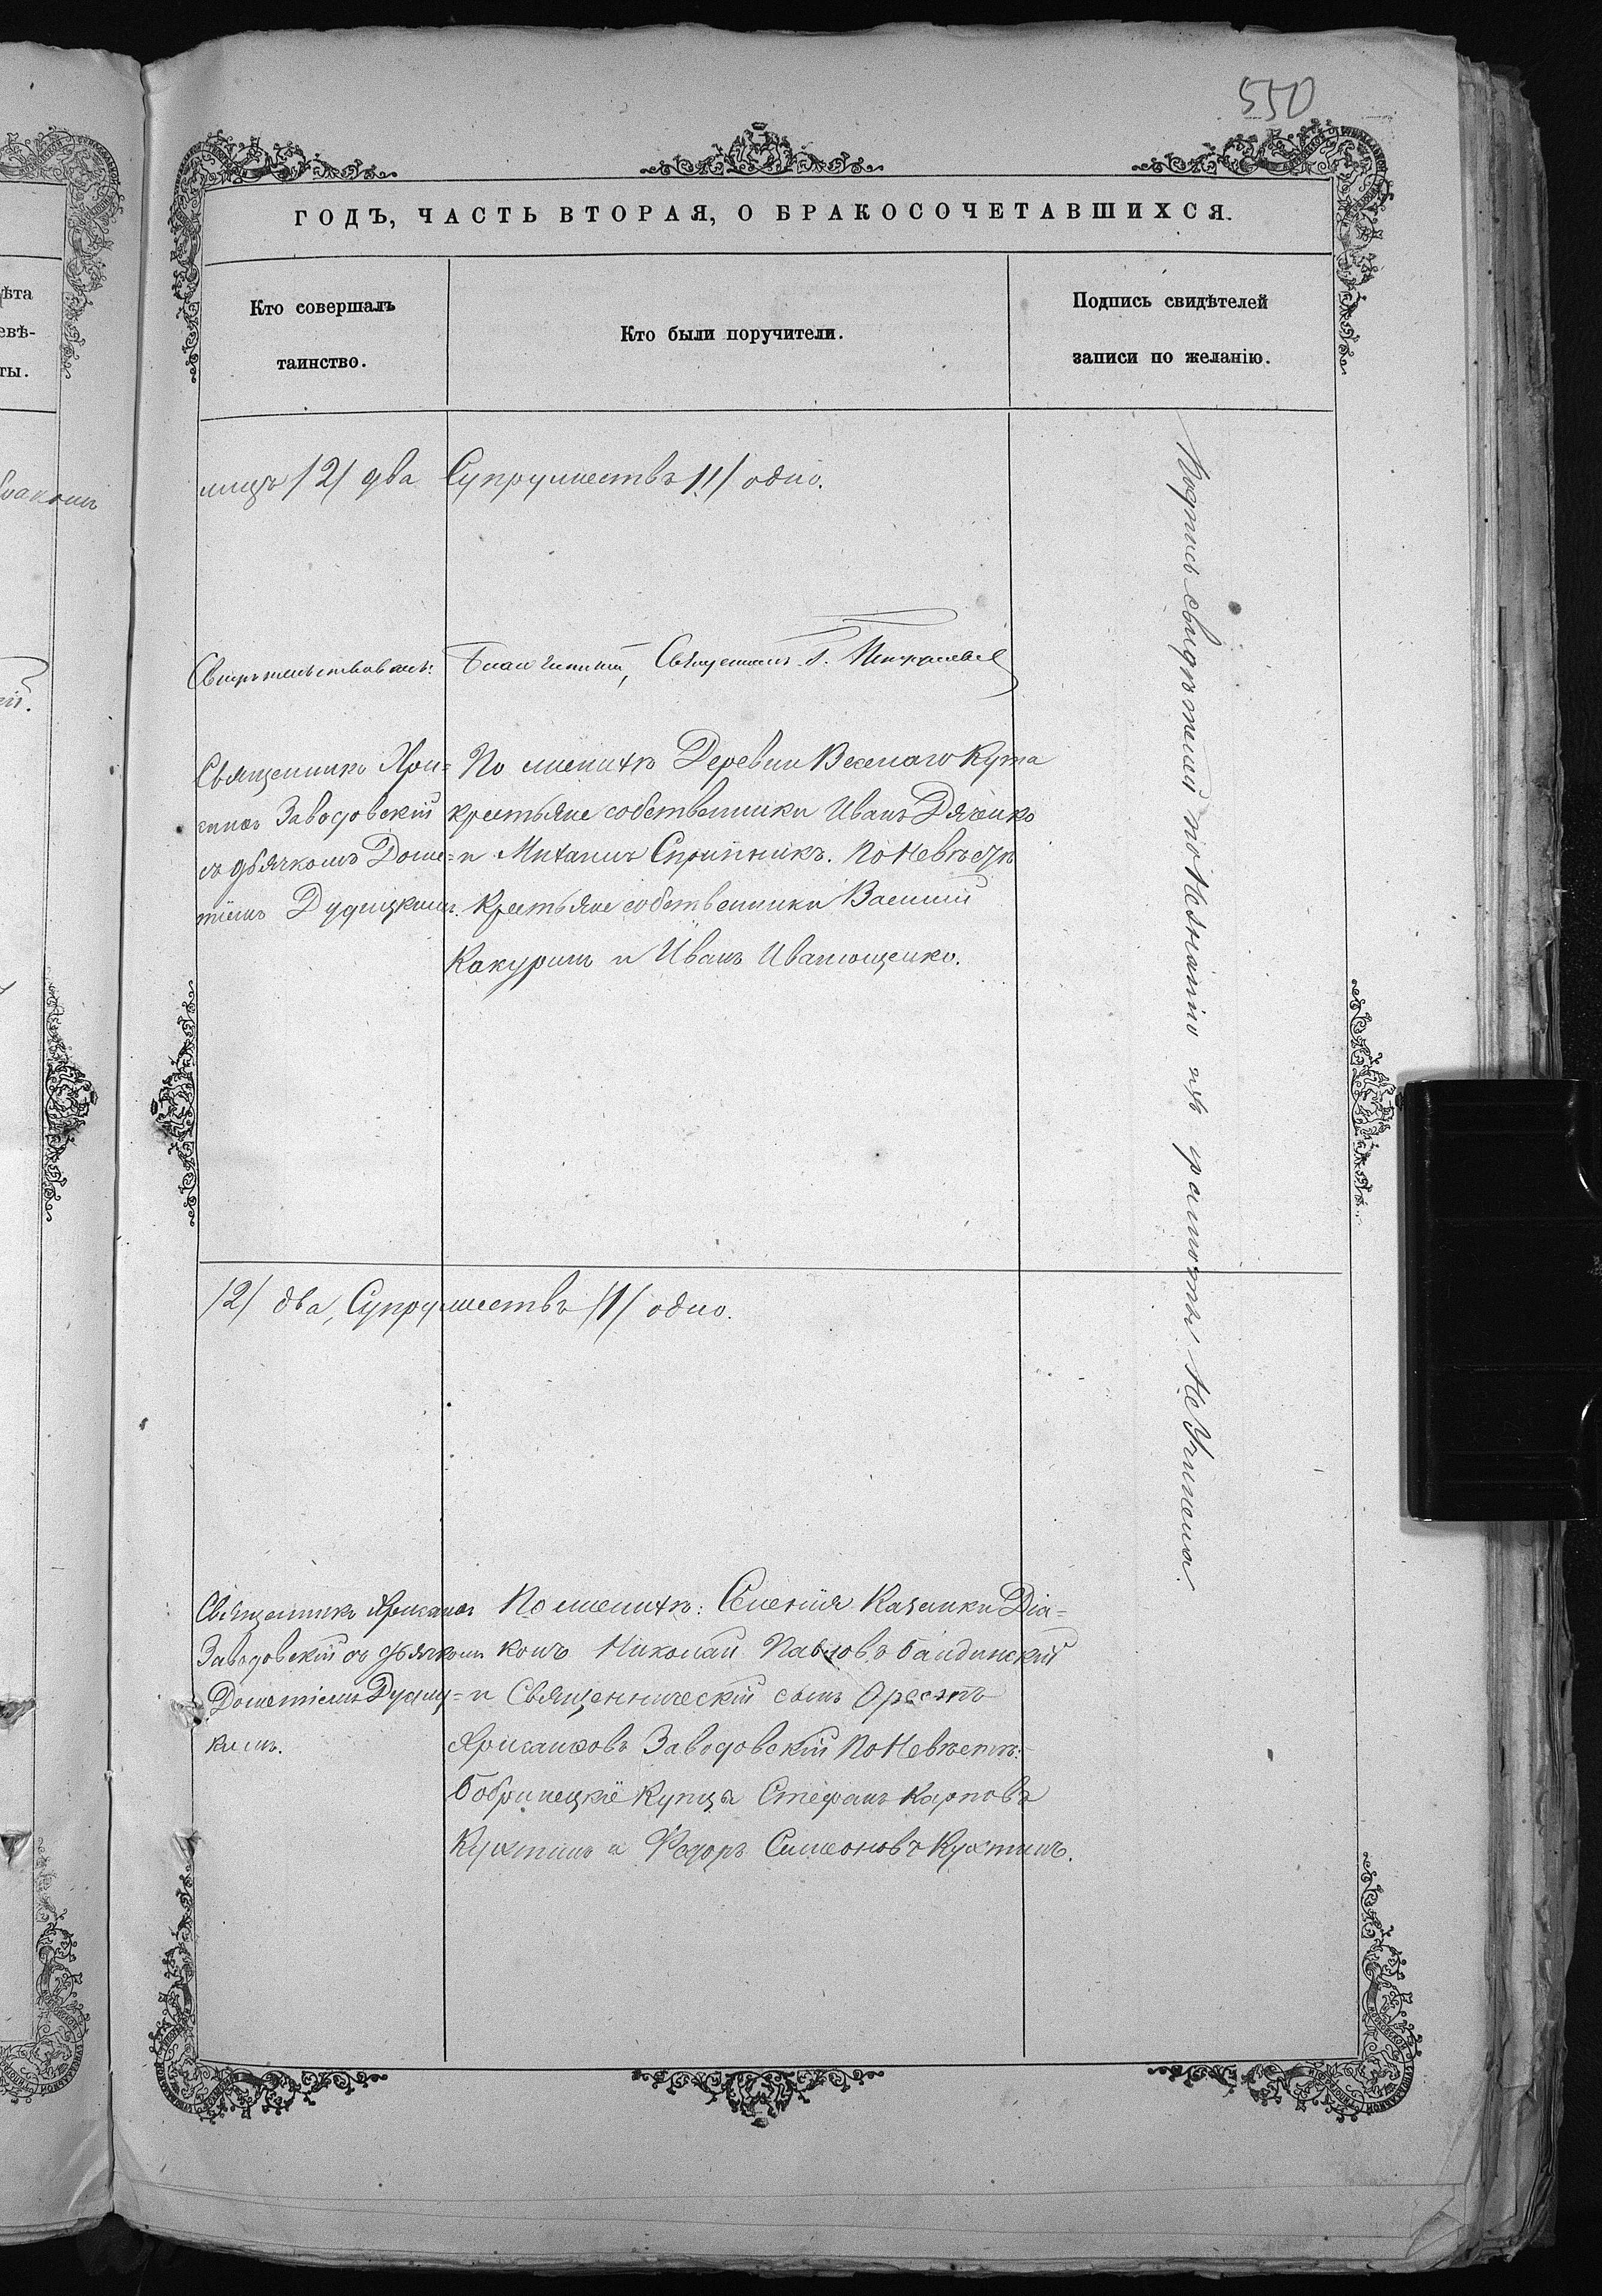 550
ѣта
евѣ-
ты.
ГОДЪ, ЧАСТЬ ВТОРАЯ, О БРАКОСОЧЕТАВШИХСЯ.
Кто совершалъ
таинство.
Кто были поручители.
Подпись свидѣтелей
записи по желанію.
лицъ /2/ два Супружествъ /1/ одно.
Свидѣтельствовалъ: Благочинный, Священникъ
Священникъ Хри-
санфъ Заводовскій
съ дьячкомъ Доме-
тіемъ Дудицкимъ.
По женихѣ Деревни Веселаго Кута
крестьяне собственники Иванъ Дяченко
и Михаилъ Скрипникъ. По Невѣстѣ
Крестьяне собственники Василій
Кокуринъ и Иванъ Иванющенко.
/2/ два, Супружествъ /1/ одно.
Священникъ Хрисанфъ
Заводовскій съ дьячкомъ
Дометіемъ Дудиц-
кимъ.
По женихѣ: Селенія Казанки Діа-
конъ Николай Павловъ Бандинскій
и Священническій сынъ Орестъ
Хрисанфовъ Заводовскій По Невѣстѣ:
Бобринецкіе Купцы Стефанъ Карповъ
Кухтинъ и Ѳедоръ Симеоновъ Кухтинъ.
Подпись свидѣтелей по Незнанію ихъ грамоты Не Учинена.